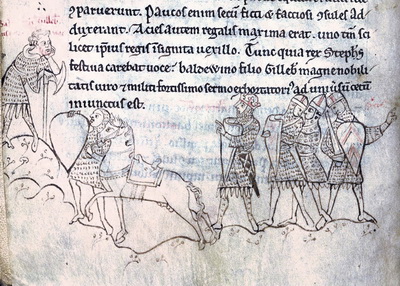 ꝯparuerunt. Paucos enim secũ ficti ⁊ factiosi ꝯsules ad
duxerant. Acies autem regalis maxima erat. uno tm̃ sci
licet ip̃ius regis insignita uexillo. Tunc quia rex Stephs̃
festiua carebat uoce. baldewino filio Gilleb̃ti magne nobili
tatis uiro ⁊ militi fortissimo sermo exhortatoriꝰ ad uniũsũ cetũ
iniunctus est.